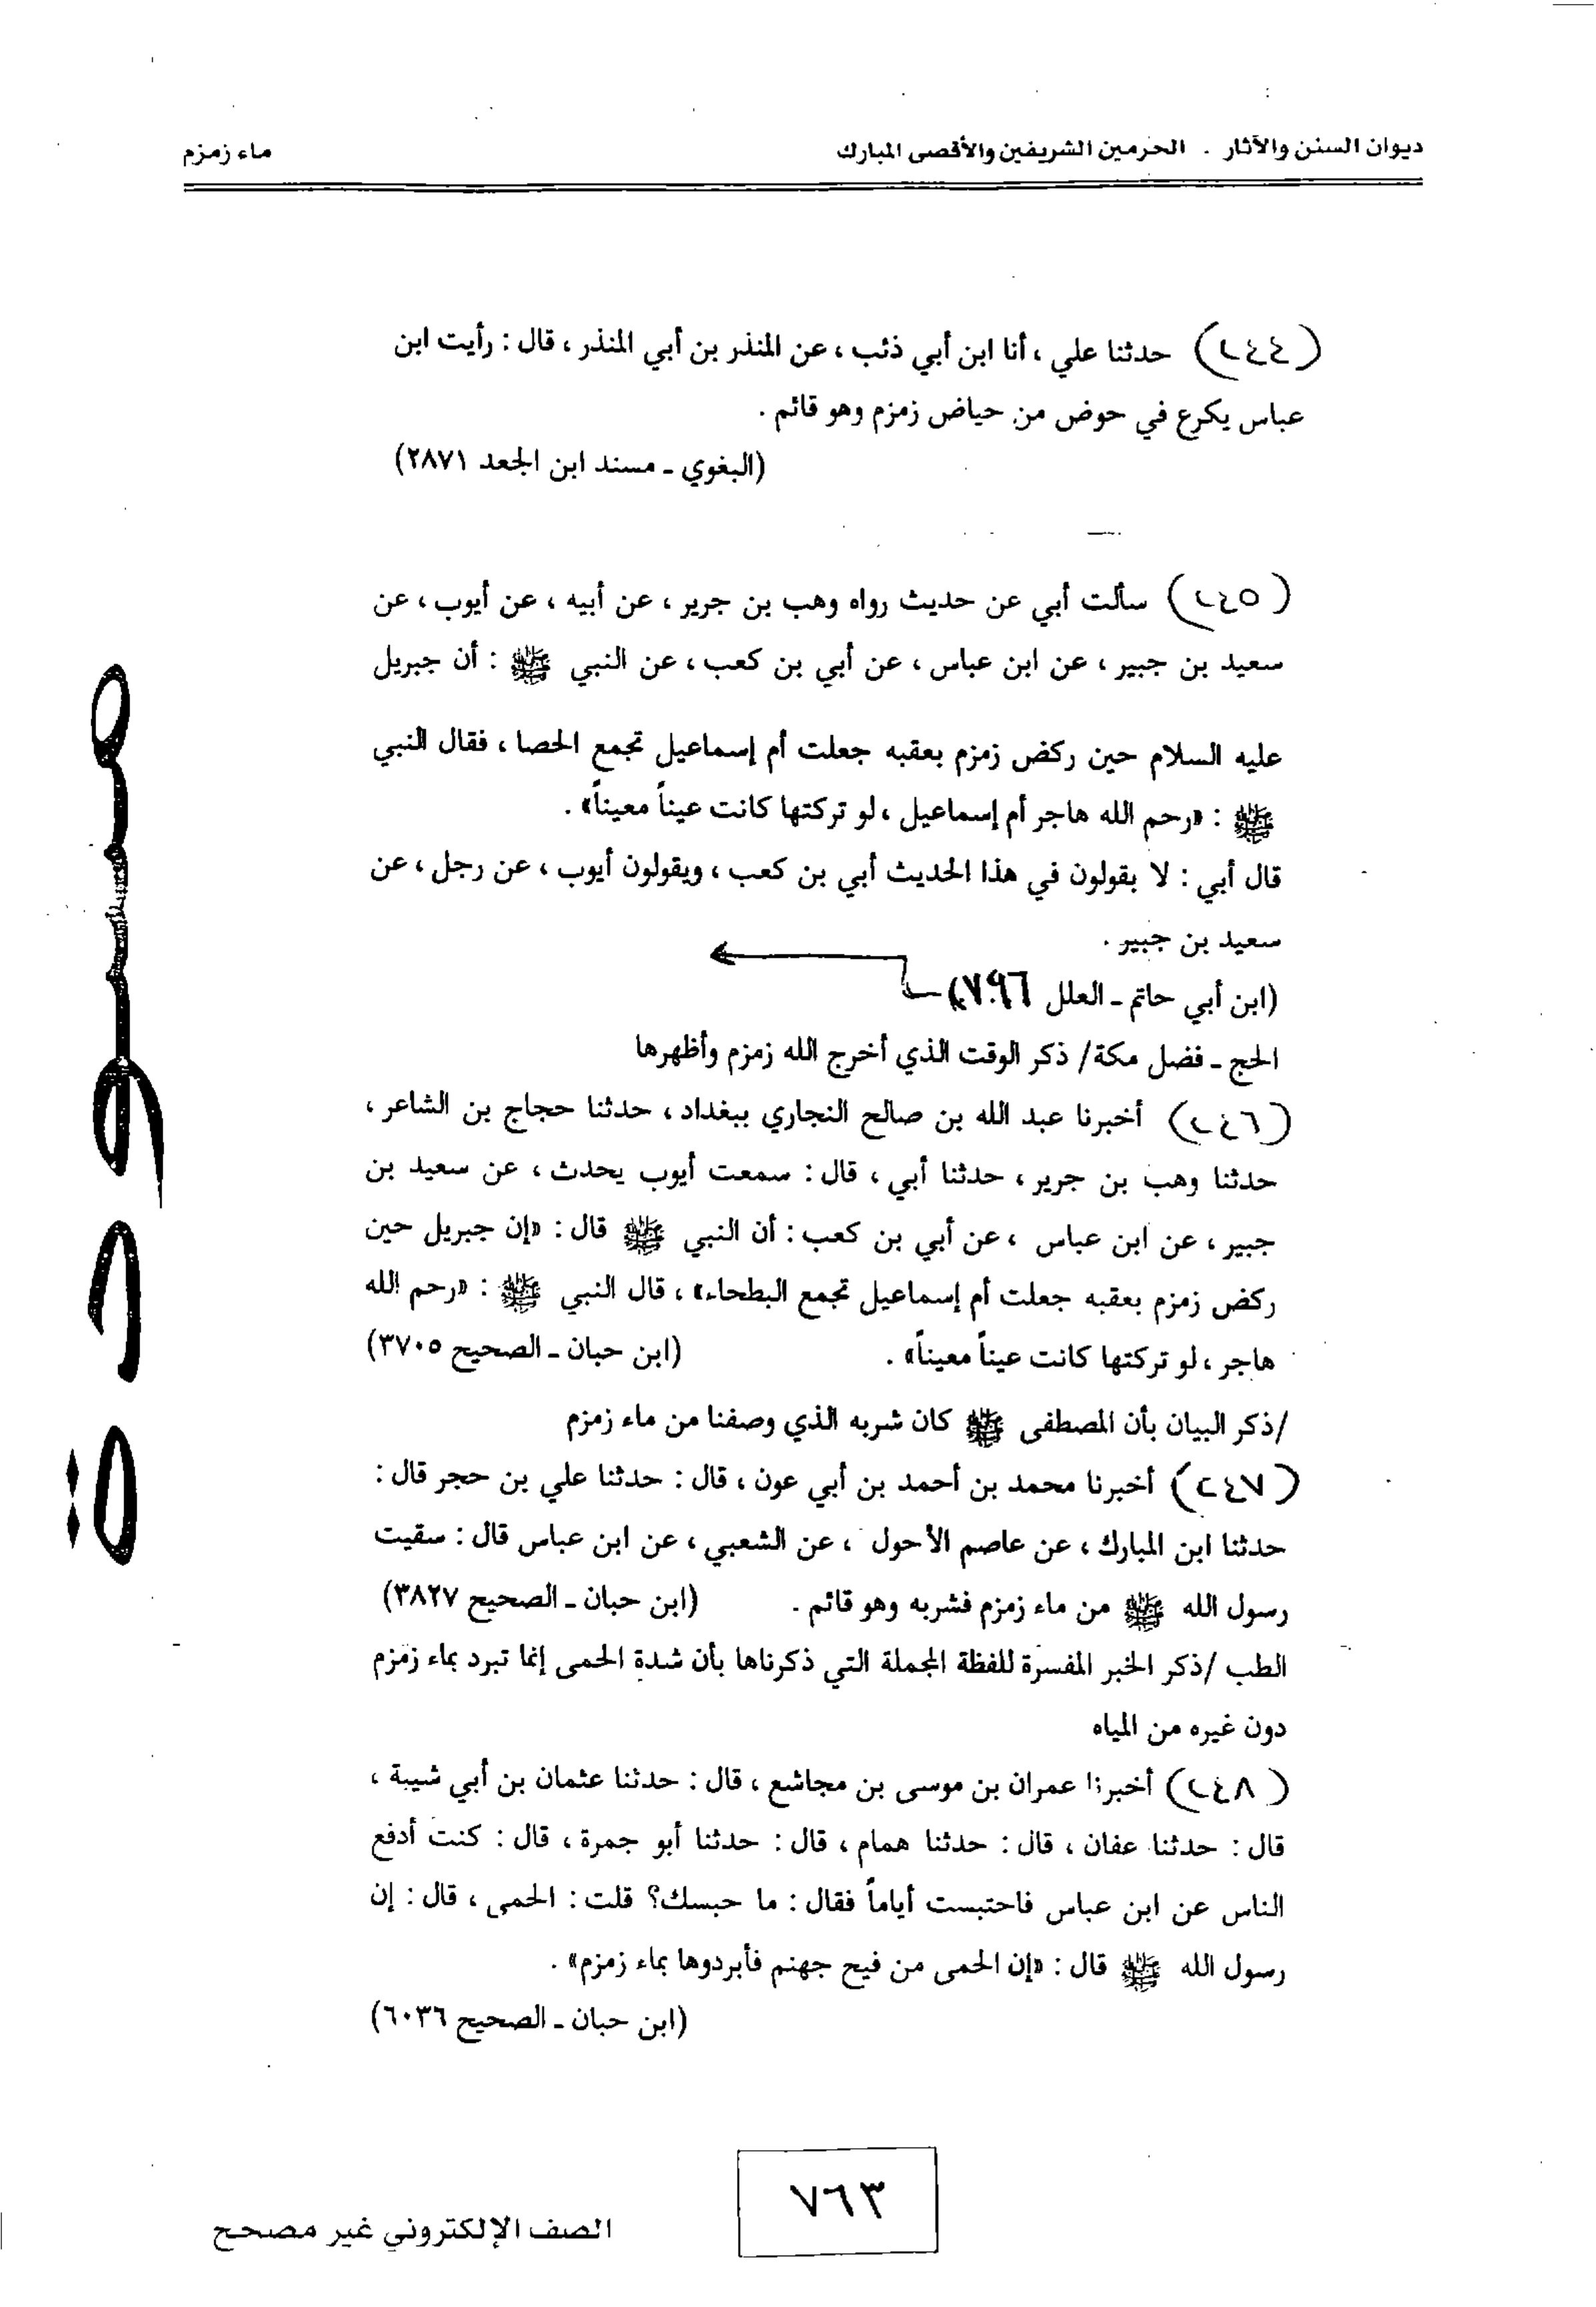 ديوان السنن والآثار . الحرمين الشريفين والأقصى المبارك
ماء زمزم
(٢٤٤) حدثنا علي ، أنا ابن أبي ذئب ، عن المنذر بن أبي المنذر ، قال : رأيت ابن
عباس يكرع في حوض من حياض زمزم وهو قائم .
(البغوي ـ مسند ابن الجعد ٢٨٧١)
(٢٤٥) سألت أبي عن حديث رواه وهب بن جرير ، عن أبيه ، عن أيوب ، عن
سعيد بن جبير ، عن ابن عباس ، عن أبي بن كعب ، عن النبي ﷺ : أن جبريل
عليه السلام حين ركض زمزم بعقبه جعلت أم إسماعيل تجمع الحصا ، فقال النبي
ﷺ : «رحم الله هاجر أم إسماعيل ، لو تركتها كانت عيناً معيناً» .
قال أبي : لا يقولون في هذا الحديث أبي بن كعب ، ويقولون أيوب ، عن رجل ، عن
سعيد بن جبير .
(ابن أبي حاتم ـ العلل ٧٩٦)
الحج ـ فضل مكة/ ذكر الوقت الذي أخرج الله زمزم وأظهرها
(٢٤٦) أخبرنا عبد الله بن صالح النجاري ببغداد ، حدثنا حجاج بن الشاعر ،
حدثنا وهب بن جرير ، حدثنا أبي ، قال : سمعت أيوب يحدث ، عن سعيد بن
جبير ، عن ابن عباس ، عن أبي بن كعب : أن النبي ﷺ قال : «إن جبريل حين
ركض زمزم بعقبه جعلت أم إسماعيل تجمع البطحاء» ، قال النبي ﷺ : «رحم الله
هاجر ، لو تركتها كانت عيناً معيناً» . (ابن حبان ـ الصحيح ٣٧٠٥)
/ذكر البيان بأن المصطفى ﷺ كان شربه الذي وصفنا من ماء زمزم
(٢٤٧) أخبرنا محمد بن أحمد بن أبي عون ، قال : حدثنا علي بن حجر قال :
حدثنا ابن المبارك ، عن عاصم الأحول ، عن الشعبي ، عن ابن عباس قال : سقيت
رسول الله ﷺ من ماء زمزم فشربه وهو قائم . (ابن حبان ـ الصحيح ٣٨٢٧)
الطب /ذكر الخبر المفسرة للفظة المجملة التي ذكرناها بأن شدة الحمى إنما تبرد بماء زمزم
دون غيره من المياه
(٢٤٨) أخبرنا عمران بن موسى بن مجاشع ، قال : حدثنا عثمان بن أبي شيبة ،
قال : حدثنا عفان ، قال : حدثنا همام ، قال : حدثنا أبو جمرة ، قال : كنت أدفع
الناس عن ابن عباس فاحتبست أياماً فقال : ما حبسك؟ قلت : الحمى ، قال : إن
رسول الله ﷺ قال : «إن الحمى من فيح جهنم فأبردوها بماء زمزم» .
(ابن حبان ـ الصحيح ٦٠٣٦)
مسودة
٧٦٣
الصف الإلكتروني غير مصحح